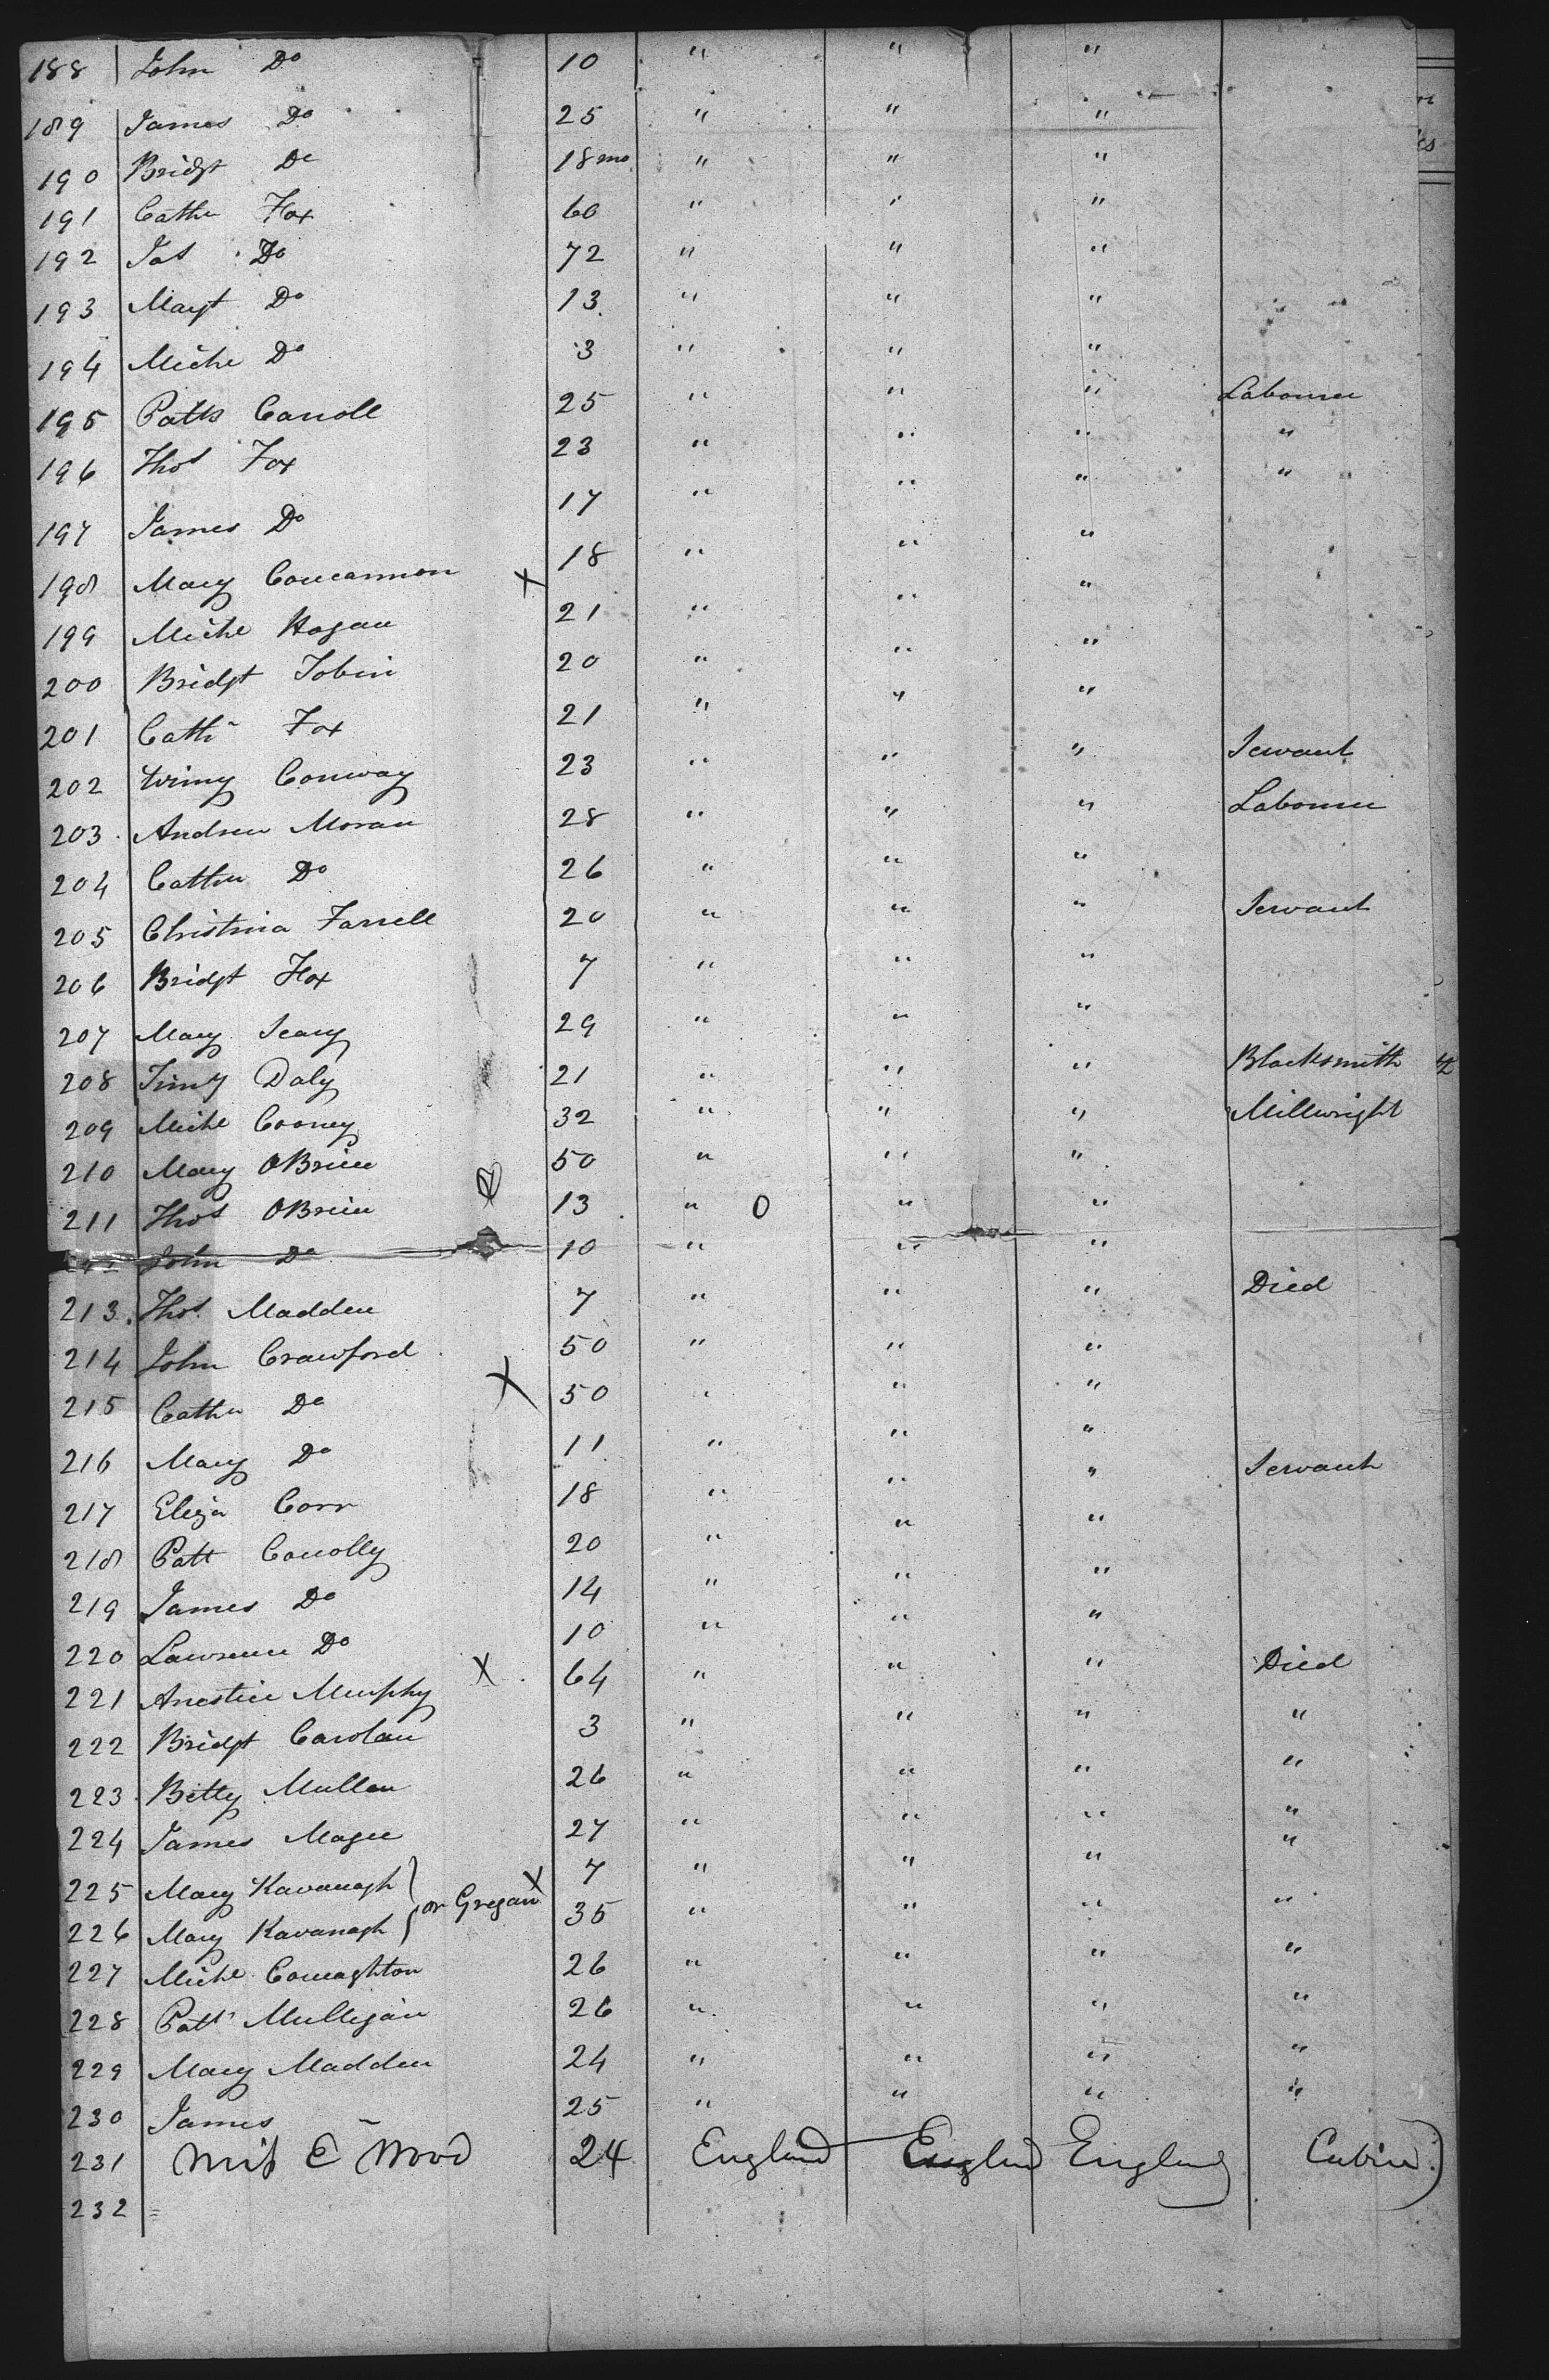 188 John Do 10 " " "
189 James Do 25 " " "
190 Bridgt Do 18 mo " " "
191 Cathe Fox 60 " " "
192 Jas Do 72 " " "
193 Magt Do 13 " " "
194 Miche Do 3 " " "
195 Patk Carroll 25 " " " Labourer
196 Thos Fox 23 " " " "
197 James Do 17 " " " "
198 Mary Concannon X 18 " " "
199 Michl Hogan 21 " " "
200 Bridgt Tobin 20 " " "
201 Cathe Fox 21 " " "
202 Winny Conway 23 " " " Servant
203 Andrew Moran 28 " " " Labourer
204 Cathn Do 26 " " "
205 Christina Farrell 20 " " " Servant
206 Bridgt Fox 7 " " "
207 Mary Seary 29 " " "
208 Timy Daly 21 " " " Blacksmith
209 Michl Cooney 32 " " " Millwright
210 Mary OBrien 50 " " "
211 Thos OBrien 13 " 0 " "
212 John Do 10 " " "
213 Thos Madden 7 " " " Died
214 John Crawford 50 " " "
215 Cathn Do X 50 " " "
216 Mary Do 11 " " "
217 Eliza Corr 18 " " " Servant
218 Patt Conolly 20 " " "
219 James Do 14 " " "
220 Lawrence Do 10 " " "
221 Anestice Murphy X 64 " " " Died
222 Bridgt Carolan 3 " " " "
223 Betty Mullen 26 " " " "
224 James Magee 27 " " " "
225 Mary Kavanagh } or Gregan X 7 " " " "
226 Mary Kavanagh 35 " " " "
227 Michl Conaghton 26 " " " "
228 Patt Mulligan 26 " " " "
229 Mary Madden 24 " " " "
230 James " 25 " " " "
231 Miss E Wood 24 England England England Cabin
232 =